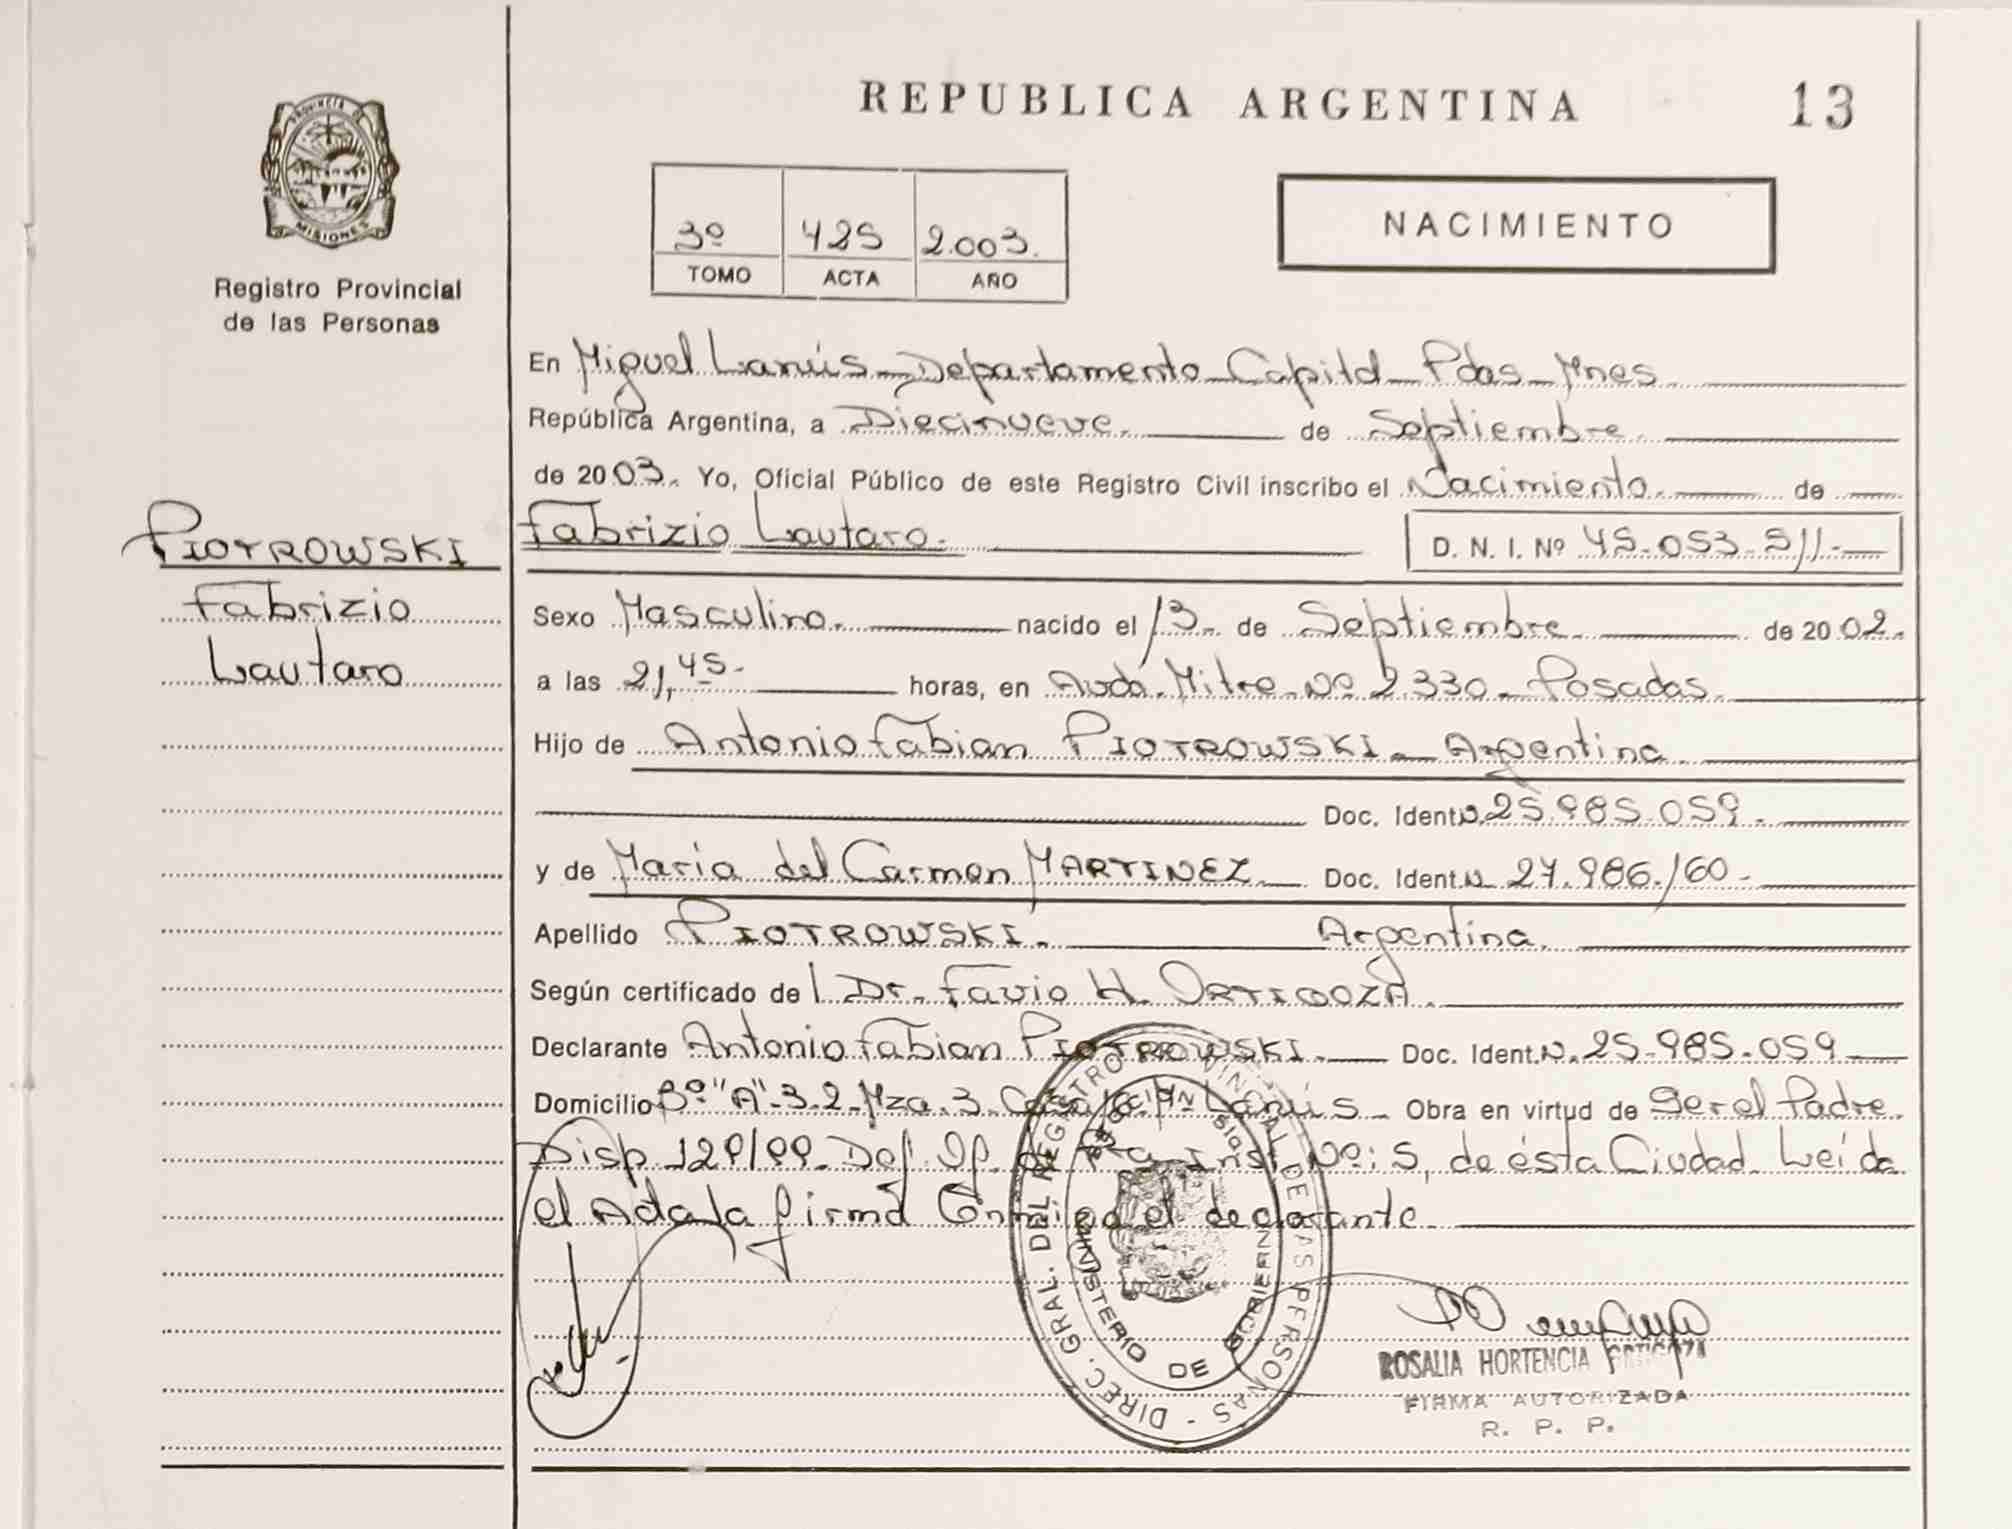 REPUBLICA ARGENTINA 13
PROVINCIA DE
MISIONES
Registro Provincial
de las Personas
3º 425 2.003.
TOMO ACTA AÑO
NACIMIENTO
En Miguel Lanús - Departamento Capital - Pdas - Mnes
República Argentina, a Diecinueve. de Septiembre.
de 2003. Yo, Oficial Público de este Registro Civil inscribo el Nacimiento. de
Fabrizio Lautaro. D. N. I. Nº 45.053.511.
PIOTROWSKI
Fabrizio
Lautaro
Sexo Masculino. nacido el 13. de Septiembre. de 2002.
a las 21,45. horas, en Avda. Mitre Nº 2.330 - Posadas.
Hijo de Antonio Fabian PIOTROWSKI - Argentina
Doc. Ident. N. 25.985.059.
y de María del Carmen MARTINEZ. Doc. Ident. N. 27.986.160.
Apellido PIOTROWSKI. Argentina.
Según certificado de l Dr. Favio H. ORTIGOZA.
Declarante Antonio Fabian PIOTROWSKI. Doc. Ident. N. 25.985.059
Domicilio Bº "A" 3.2 - Mza. 3 - Casa Lanús - Obra en virtud de Ser el Padre.
Disp 129/99. Def. Of. Inst. Nº: 5, de ésta Ciudad. Leída
el Acta la firmá Conmigo el declarante.
DIREC. GRAL. DEL REGISTRO PROVINCIAL DE LAS PERSONAS -
MINISTERIO DE GOBIERNO
ROSALIA HORTENCIA ORTIGOZA
FIRMA AUTORIZADA
R. P. P.